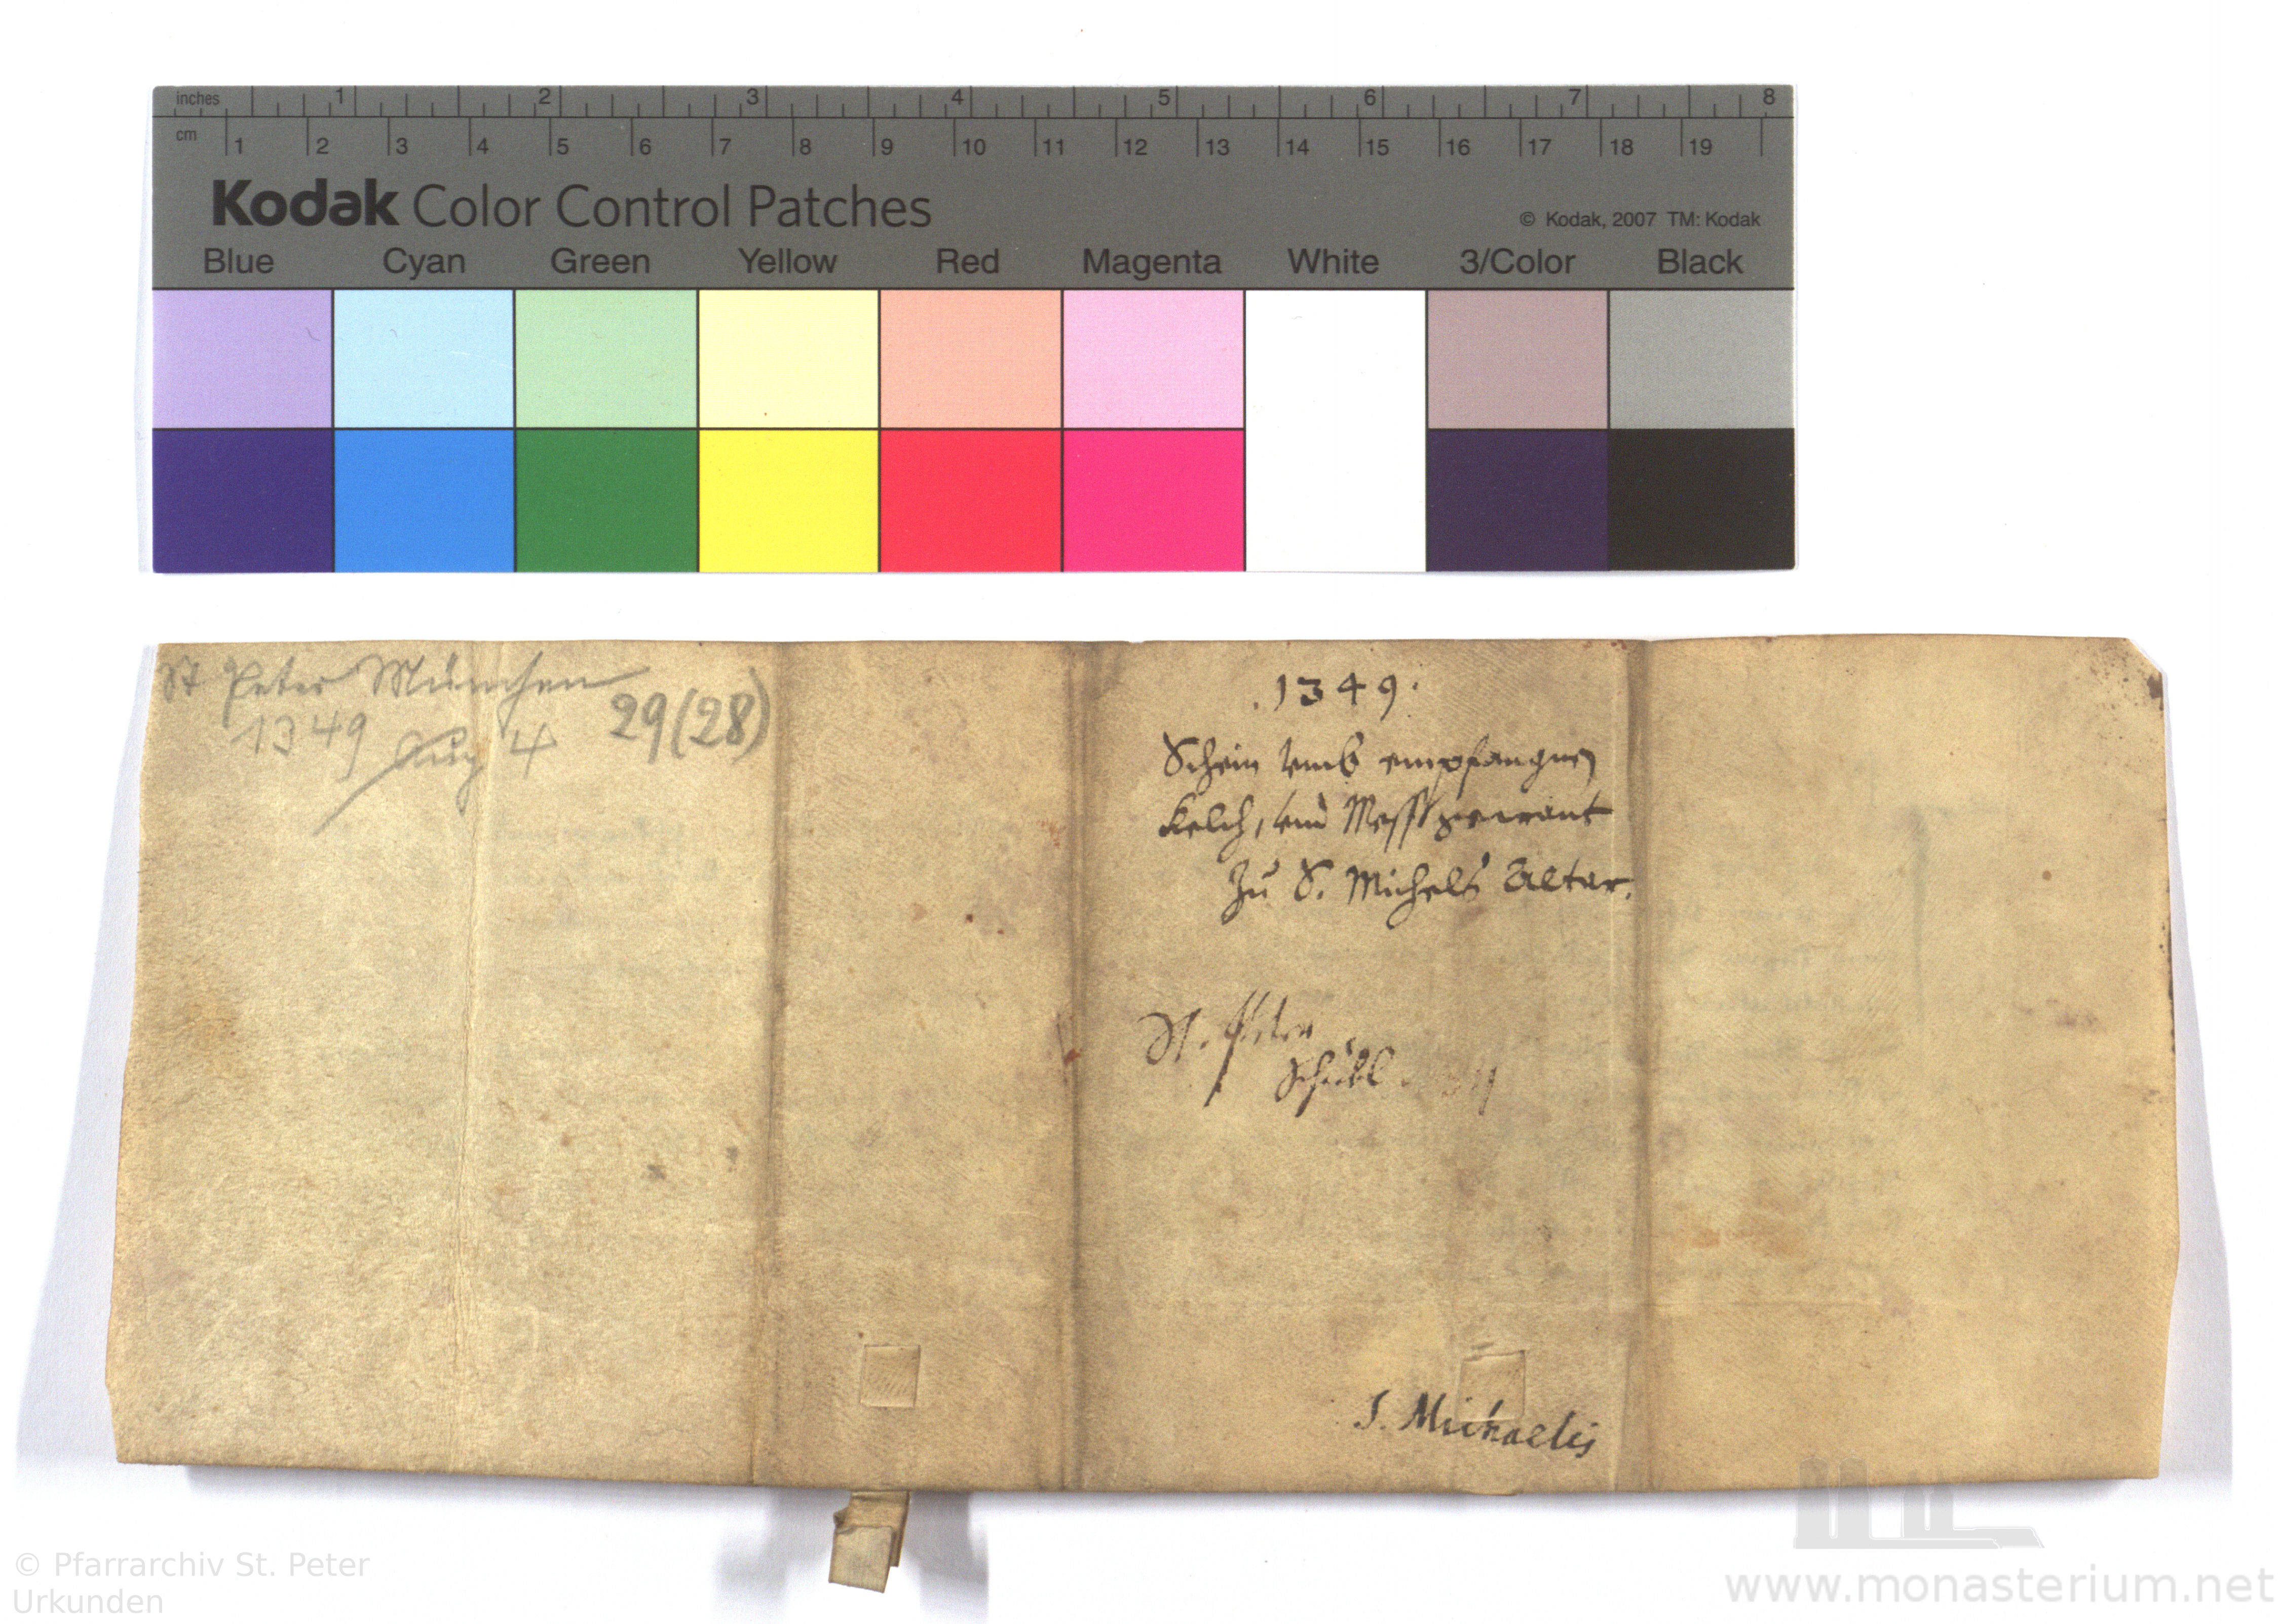 inches 1 2 3 4 5 6 7 8
cm 1 2 3 4 5 6 7 8 9 10 11 12 13 14 15 16 17 18 19
Kodak Color Control Patches
© Kodak, 2007 TM: Kodak
Blue Cyan Green Yellow Red Magenta White 3/Color Black
St Peter München
1349 Aug 4
29(28)
.1349.
Schein vmb empfangnen
Kelch, vnd Messgewant
zu S. Michels Altar.
St. Peter
Schubl
S. Michaelis
© Pfarrarchiv St. Peter
Urkunden
www.monasterium.net